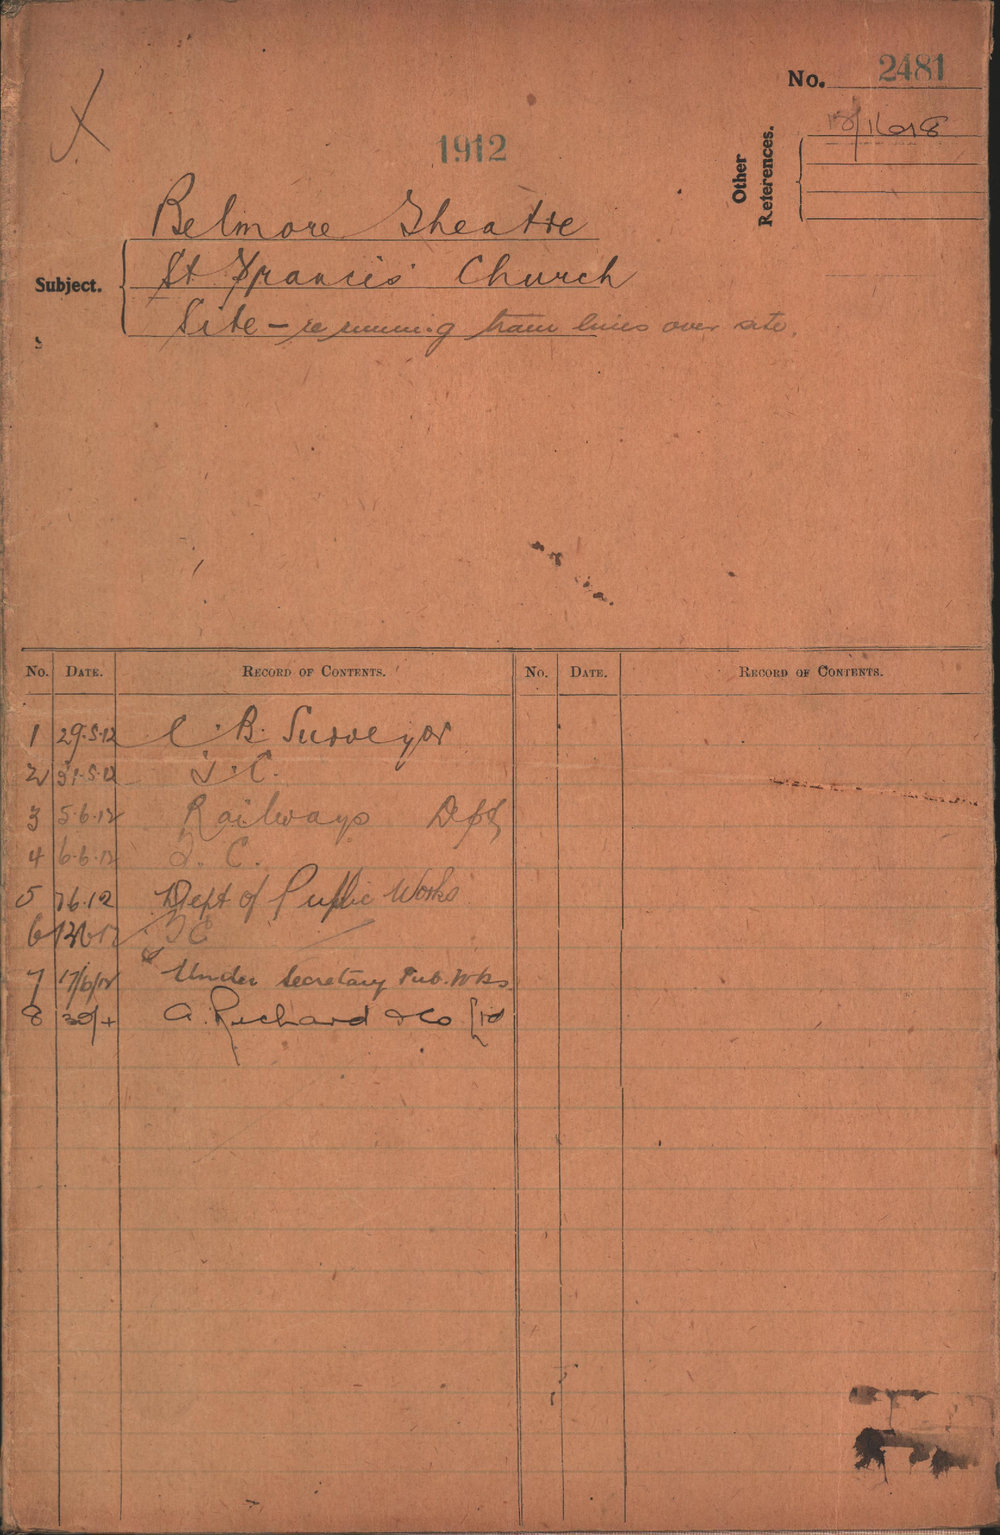 No. 2481
1912
Other References.
Belmore Theatre
Subject.
St Francis' Church
Site - re running tram lines over site.
No. DATE. RECORD OF CONTENTS. No. DATE. RECORD OF CONTENTS.
1 29.5.12 C. B. Surveyor
2 31.5.12 T.C.
3 5.6.12 Railways Dept
4 6.6.12 T. C.
5 7.6.12 Dept of Public Works
6 T C
7 17/6/12 Under Secretary Pub. Wks.
8 A. Richard & Co